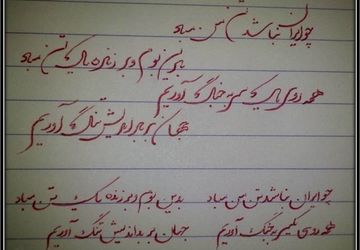 چو ایران نباشد تن من مباد
بدین بوم و بر زنده یک تن مباد
همه روی یکسر به جنگ آوریم
جهان بر بداندیش تنگ آوریم
چو ایران نباشد تن من مباد بدین بوم و بر زنده یک تن مباد
همه روی یکسر به جنگ آوریم جهان بر بداندیش تنگ آوریم